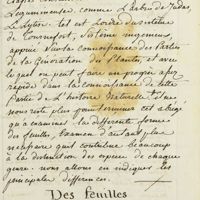 Légumineuse, comme l'arbre de Judas,
l'Alytire. tel est l'ordre du sisteme
de Tournefort, sisteme ingenieux,
appuié sur la connoissance des Parties
de la fructification des Plantes, et avec
lequel on peut faire un progrès assez
rapide dans la connoissance de cette
Partie de l'histoire naturelle. il ne
nous reste plus pour terminer cet abregé
qu'à examiner la differente forme
des feuilles, Examen d'autant plus
necessaire qu'il contribue beaucoup
à la distinction des especes de chaque
genre. nous allons en indiquer les
principales differences.
Des feuilles